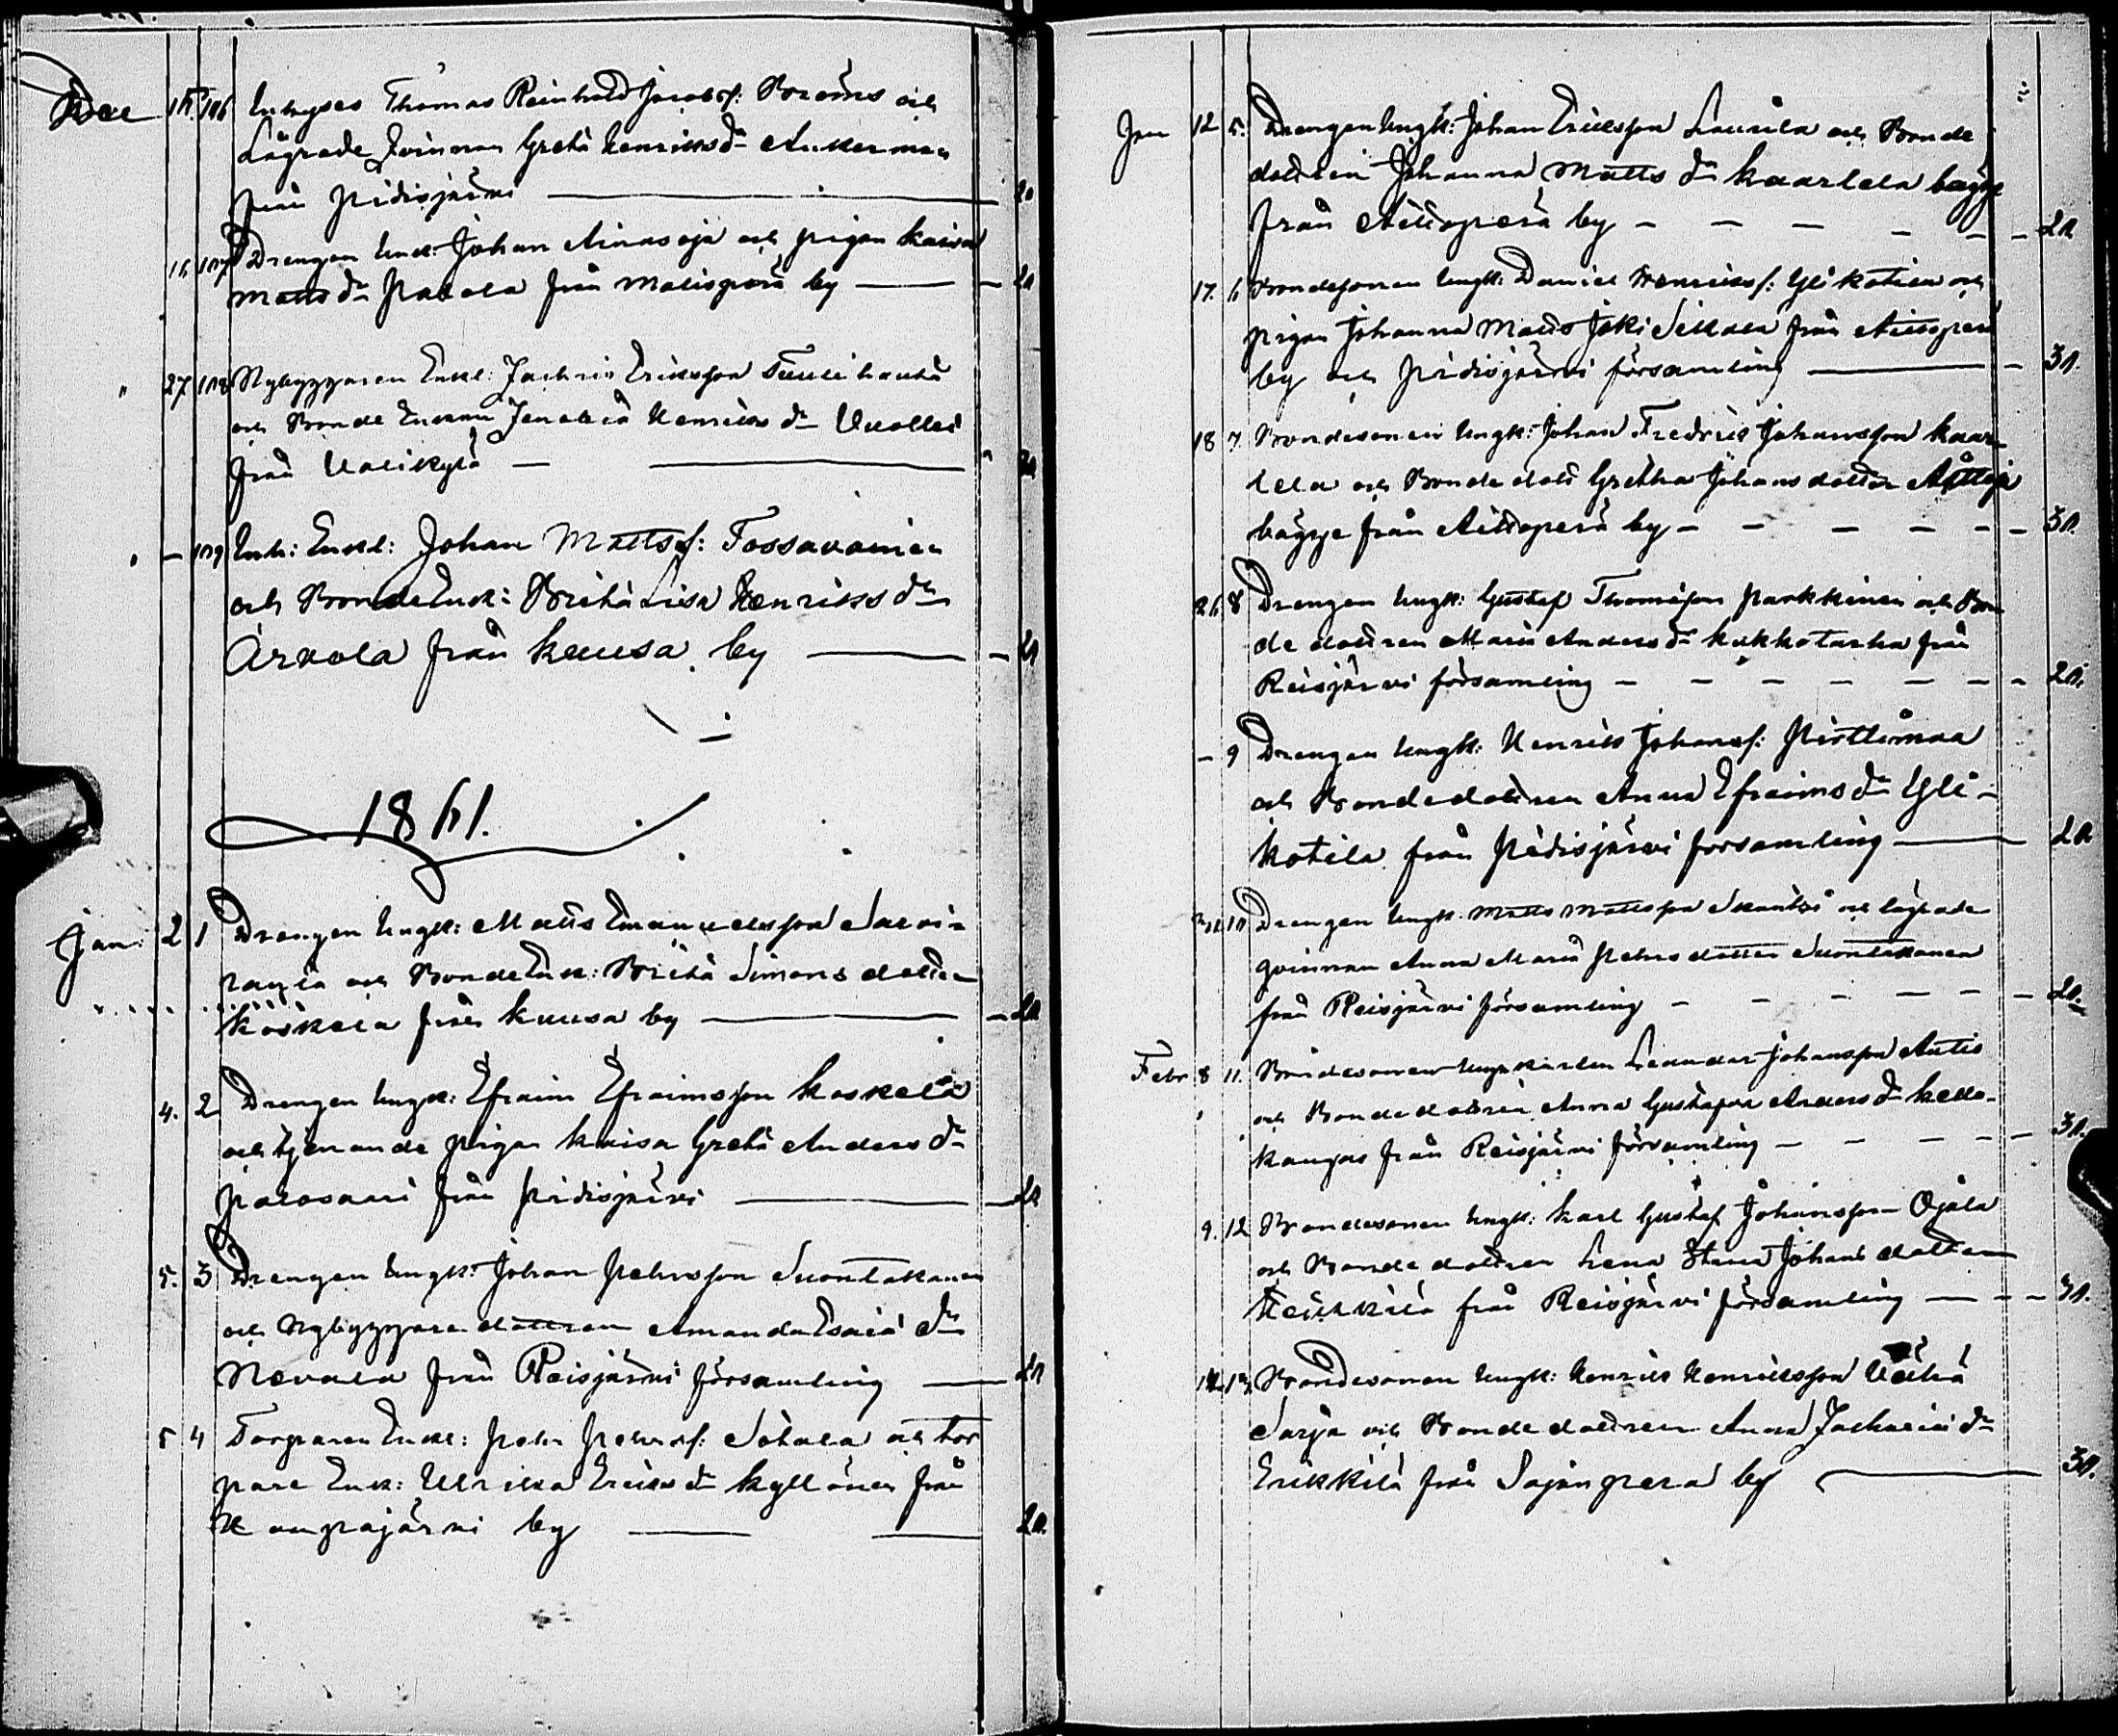 Dec 15. 106 Inhyses Thomas Reinhold Jacobsf: Broms och
Lägrade Qvinnan Greta Henriksdr Ankerman
från Pidisjärvi 20
16 107 Drengen Unk: Johan Ainasoja och pigan Kaisa
Matts dr Pakola från Matisperä by 20
" 27 108 Nybyggaren Enkl: Zachris Eriksson
och Bonde Enkan Henriks dr Vuolle
från Ualikylä 20
" – 109 Inh: Enkl: Johan Mattsf: Tossavainen
och BondeEnk: Brita Lisa Henriks dr
Arvola från Kuusa by 20
1861.
Jan: 2 1 Drengen Ungk: Matts Emanuelsson
och BondeEnk: Brita Simons dotter
Koskela från Kuusa by 20
4. 2 Drengen Ungk: Efraim Efraimsson Koskela
och tjenande pigan Kaisa Greta Anders dr
Palosaari från Pidisjärvi 20
5. 3 Drengen Ungk: Johan Pehrsson Suontakanen
och Nybyggare dottren Amanda Esaiä dr
Nevala från Reisjärvi församling 20
5 4 Torparen Enkl: Pehr Pehrsf: Sohala och tor
pare Enk: Ulrika Eriks dr Kyllönen från
Haapajärvi by 20.
Jan 12 5. Drengen Ungk: Johan Eriksson Laurila och Bonde
dottren Johanna Matts dr Kaarlela bägge
från Aittoperä by 20
17. 6 Bondesonen Ungk: Daniel Henriksf: Ylikotila och
pigan Johanna Matts Joki Sikala från Aittoperä
by och Pidisjärvi församling 30.
18 7. Bondesonen Ungk: Johan Fredrik Johansson Kaar
lela och Bonde dott Gretha Johans dotter
bägge från Aittoperä by 30.
26. 8 Drengen Ungk: Gustaf Thomasson Parkkinen och Bon
de dottren Maria Anders dr Kukkotarha från
Reisjärvi församling 20.
– 9 Drengen Ungk: Henrik Johansf: Pirttimaa
och Bondedottren Anna Efraims dr Yli-
kotila från Pidisjärvi församling 20
10 Drengen Ungk: Matts Mattsson och lägrade
qvinnan Anna Maria Pehrs dotter Suontakanen
från Reisjärvi församling 20.
Febr 8 11. Bondesonen Ungkarlen Leander Johansson Autio
och Bondedottren Anna Gustafva Anders dr Kello-
kangas från Reisjärvi församling 30.
9. 12 Bondesonen Ungk: Karl Gustaf Johansson Ojala
och Bonde dottren Lena Stina Johans dotter
Heikkilä från Reisjärvi församling 30.
14. 13. Bondesonen Ungk: Henrik Henriksson Vähä
Sarja och Bonde dottren Anna Zachariä dr
Erikkilä från Sajanperä by 30.